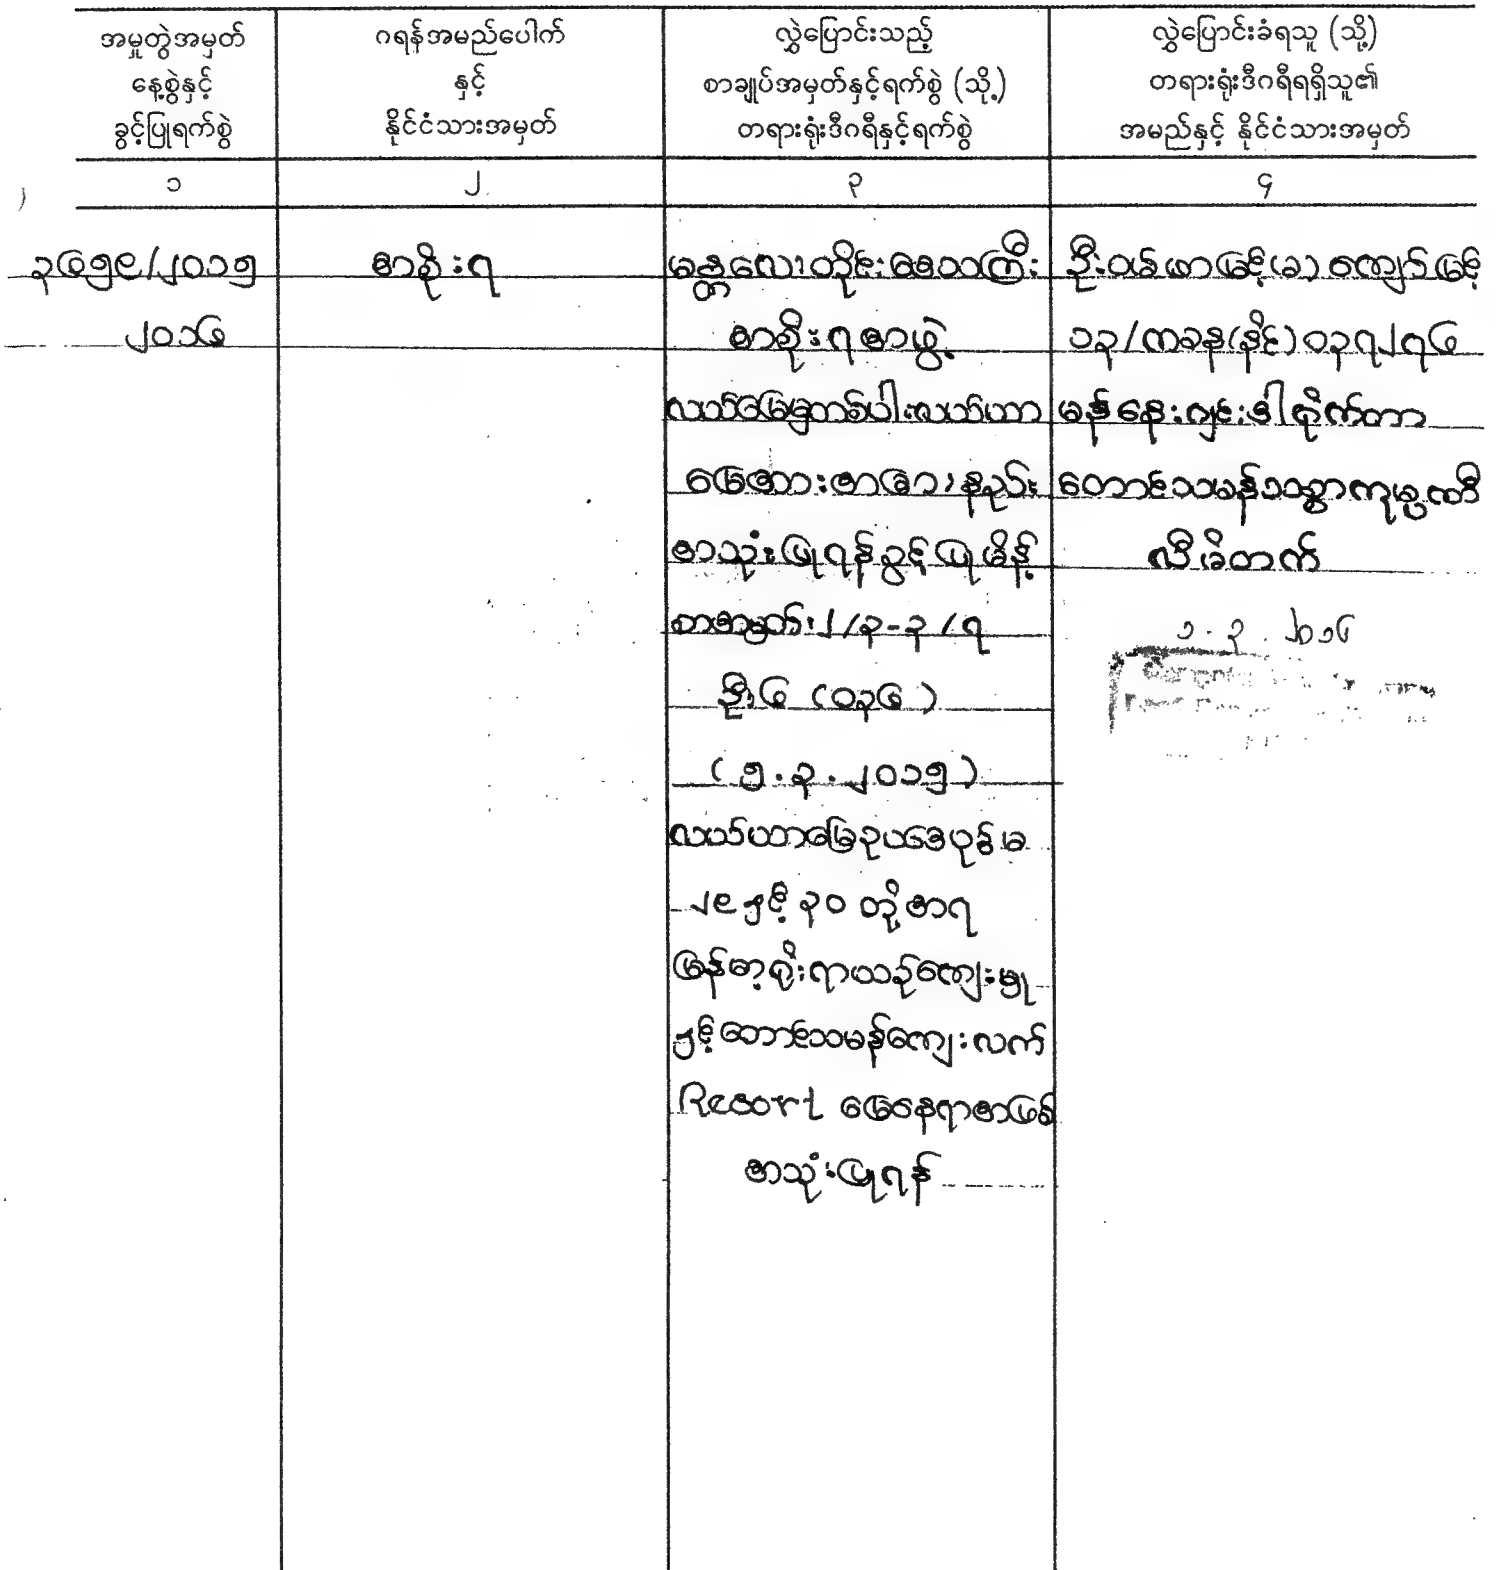 အမှုတွဲအမှတ်
နေ့စွဲနှင့်
ခွင့်ပြုရက်စွဲ
ဂရန်အမည်ပေါက်
နှင့်
နိုင်ငံသားအမှတ်
လွှဲပြောင်းသည့်
စာချုပ်အမှတ်နှင့်ရက်စွဲ (သို့)
တရားရုံးဒီဂရီနှင့်ရက်စွဲ
လွှဲပြောင်းခံရသူ (သို့)
တရားရုံးဒီဂရီရရှိသူ၏
အမည်နှင့် နိုင်ငံသားအမှတ်
၁
၂
၃
၄
၃၆၅၉/၂၀၁၅
၂၀၁၆
အစိုးရ
မန္တလေးတိုင်းဒေသကြီး
အစိုးရအဖွဲ့
လယ်မြေမှတစ်ပါးလယ်ယာ
မြေအားအခြားနည်း
အသုံးပြုရန်ခွင့်ပြုမိန့်
စာအမှတ်၊ ၂/၃-၃/၇
ဦး၆ (၀၃၆)
(၅.၃.၂၀၁၅)
လယ်ယာမြေဥပဒေပုဒ်မ
၂၉နှင့် ၃၀ တို့အရ
မြန်မာ့ရိုးရာယဉ်ကျေးမှု
နှင့်တောင်သမန်ကျေးလက်
Resort မြေနေရာအဖြစ်
အသုံးပြုရန်
ဦးဝမ်ဖာမြင့်(ခ)ကျော်မြင့်
၁၃/ကခန(နိုင်)၀၃၇၂၇၆
မန်နေးဂျင်းဒါရိုက်တာ
တောင်သမန်သစ္စာကုမ္ပဏီ
လီမိတက်
၁.၃.၂၀၁၆